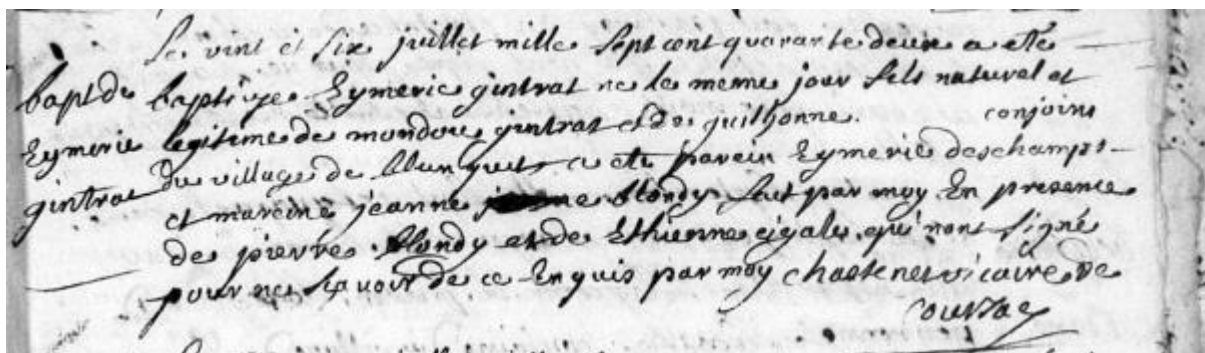 Le vint et six juillet mille sept cent quarante deux a eté
bapt de baptize Eymeric gintrat ne le meme jour fils naturel et
Eymeric legitime de mondou gintrat et de guilhonne conjoins
gintrat du village de a eté parein Eymeric deschamps
et mareine jeanne blondy fait par moy En presence
de pierre blondy et de Ethienne qui nont signé
pour ne sçavoir de ce Enquis par moy Chastenet vicaire de
Courzac